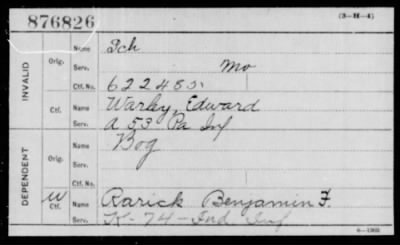 876826
(3-H-4)
INVALID
Orig.
Name Sch
Serv. Mo
Ctf. No. 622485
Ctf.
Name Warley, Edward
Serv. A 53 Pa Inf
DEPENDENT
Orig.
Name Bog
Serv.
Ctf. No.
W
Ctf.
Name Rarick Benjamin F.
Serv. K-74-Ind Inf